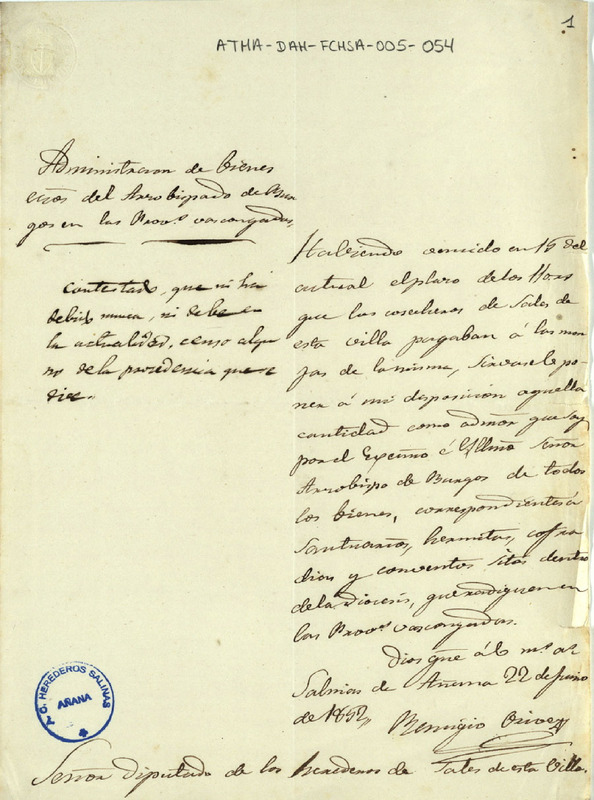 1
ATHA-DAH-FCHSA-005-054
Administracion de bienes
ecõs del Arzobispado de Bur
gos en las Prov.s vascongadas,
contestado, que ni ha
debido nunca, ni debe en
la actualidad, censo algu
no de la procedencia que se
dice.
Habiendo vencido en 15 del
actual el plazo de los
que los cosecheros de Sales de
esta villa pagaban á las mon
jas de la misma, sirvase V. po
ner á mi disposicion aquella
cantidad como admõr que soy
por el Excmo é Yllmo Señor
Arzobispo de Burgos de todos
los bienes, correspondientes á
Santuarios, hermitas, cofra
dias y conventos sitos dentro
de la Diocesis, que radiquen en
las Prov.s vascongadas.
Dios gue á V. m.s a.s
Salinas de Añana 22 de Junio
de 1852,,
Remigio
Señor Diputado de los Herederos de Sales de esta Villa.
C. HEREDEROS SALINAS
AÑANA